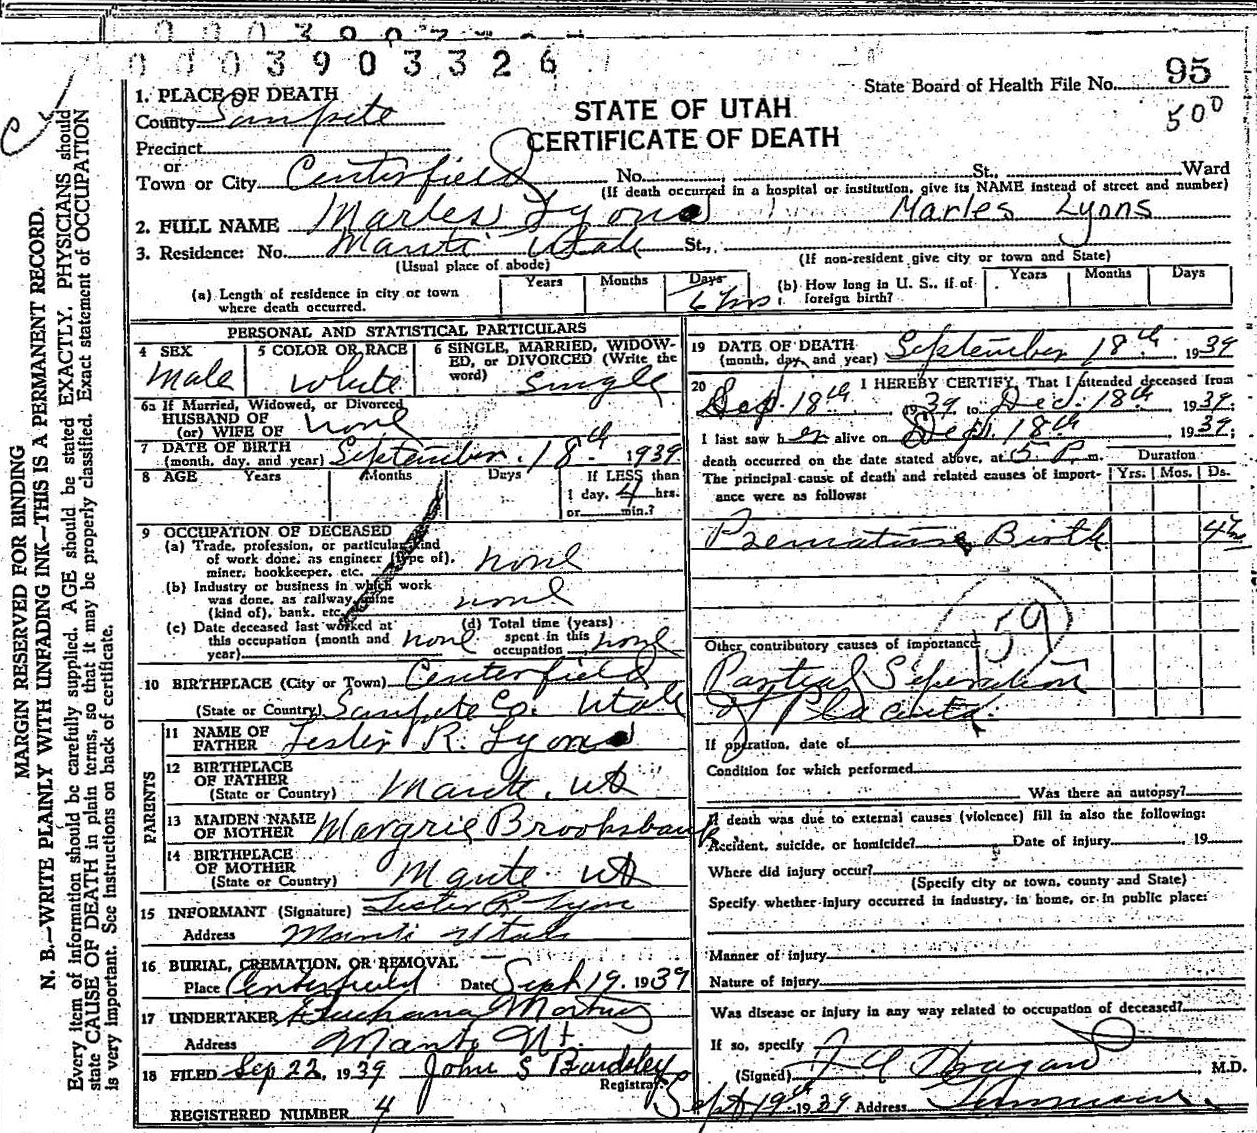 0003903326
State Board of Health File No. 95
500
STATE OF UTAH
CERTIFICATE OF DEATH
1. PLACE OF DEATH
County Sanpete
Precinct
or
Town or City Centerfield No. St., Ward
(If death occurred in a hospital or institution, give its NAME instead of street and number)
2. FULL NAME Marles Lyons Marles Lyons
3. Residence: No. Manti Utah St.,
(Usual place of abode) (If non-resident give city or town and State)
(a) Length of residence in city or town where death occurred. Years Months Days
(b) How long in U. S., if of foreign birth? Years Months Days
MARGIN RESERVED FOR BINDING
N. B.—WRITE PLAINLY WITH UNFADING INK—THIS IS A PERMANENT RECORD.
Every item of information should be carefully supplied. AGE should be stated EXACTLY. PHYSICIANS should
state CAUSE OF DEATH in plain terms, so that it may be properly classified. Exact statement of OCCUPATION
is very important. See instructions on back of certificate.
PERSONAL AND STATISTICAL PARTICULARS
4 SEX Male
5 COLOR OR RACE White
6 SINGLE, MARRIED, WIDOWED, or DIVORCED (Write the word) Single
6a If Married, Widowed, or Divorced
HUSBAND OF
(or) WIFE OF none
7 DATE OF BIRTH
(month, day, and year) September 18th 1939
8 AGE Years Months Days If LESS than
1 day, 4 hrs.
or min.?
9 OCCUPATION OF DECEASED
(a) Trade, profession, or particular kind
of work done, as engineer (type of),
miner, bookkeeper, etc. none
(b) Industry or business in which work
was done, as railway, mine
(kind of), bank, etc. none
(c) Date deceased last worked at
this occupation (month and
year) none
(d) Total time (years)
spent in this
occupation none
10 BIRTHPLACE (City or Town) Centerfield
(State or Country) Sanpete Co. Utah
PARENTS
11 NAME OF
FATHER Lester R. Lyons
12 BIRTHPLACE
OF FATHER
(State or Country) Manti, Ut
13 MAIDEN NAME
OF MOTHER Margrie Brooksbank
14 BIRTHPLACE
OF MOTHER
(State or Country) Manti Ut
15 INFORMANT (Signature) Lester R Lyon
Address Manti Utah
16 BURIAL, CREMATION, OR REMOVAL
Place Centerfield Date Sept 19, 1939
17 UNDERTAKER
Address Manti Ut.
18 FILED Sep 22, 1939 John S Bardsley
Registrar
REGISTERED NUMBER 4
19 DATE OF DEATH
(month, day, and year) September 18th 1939
20 I HEREBY CERTIFY, That I attended deceased from
Sep. 18th 1939 to 18th 1939;
I last saw h alive on Sep. 18th 1939;
death occurred on the date stated above, at 5 P. m.
The principal cause of death and related causes of importance were as follows:
Duration
Yrs. Mos. Ds.
Premature Birth 4 hrs
159
Other contributory causes of importance:
Partial Seperation
of Placenta.
If operation, date of
Condition for which performed
Was there an autopsy?
If death was due to external causes (violence) fill in also the following:
Accident, suicide, or homicide? Date of injury 19
Where did injury occur?
(Specify city or town, county and State)
Specify whether injury occurred in industry, in home, or in public place:
Manner of injury
Nature of injury
Was disease or injury in any way related to occupation of deceased?
If so, specify
(Signed) M.D.
Sept 19th 1939 Address